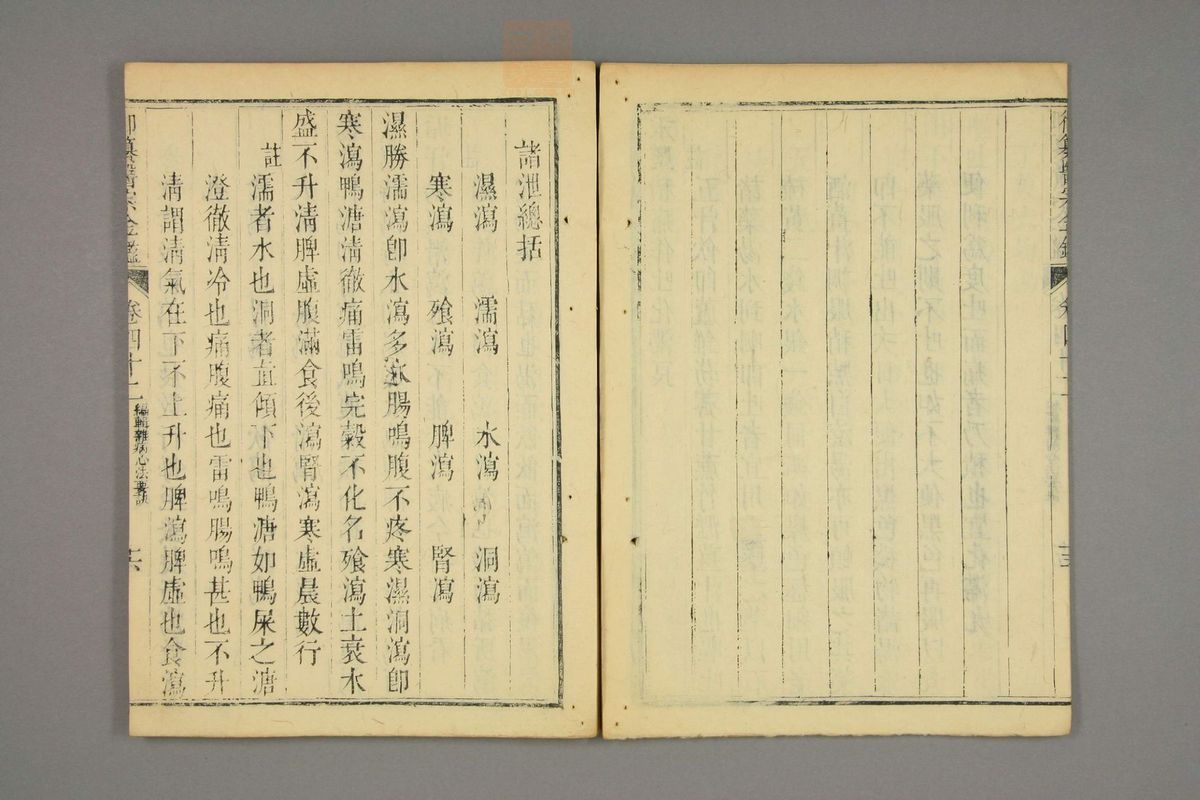 御纂醫宗金鑑
卷四十二
諸泄總括
濕瀉　濡瀉　水瀉　洞瀉
寒瀉　飱瀉　脾瀉　腎瀉
濕勝濡瀉卽水瀉多水腸鳴腹不疼寒濕洞瀉卽
寒瀉鴨溏淸徹痛雷鳴完穀不化名飱瀉土衰木
盛不升淸脾虛腹滿食後瀉腎瀉寒虛晨數行
註濡者水也洞者直傾下也鴨溏如鴨屎之溏
澄徹淸冷也痛腹痛也雷鳴腸鳴甚也不升
淸謂淸氣在下不上升也脾瀉脾虛也食瀉
御纂醫宗金鑑　卷四十二　編輯雜病心法要訣